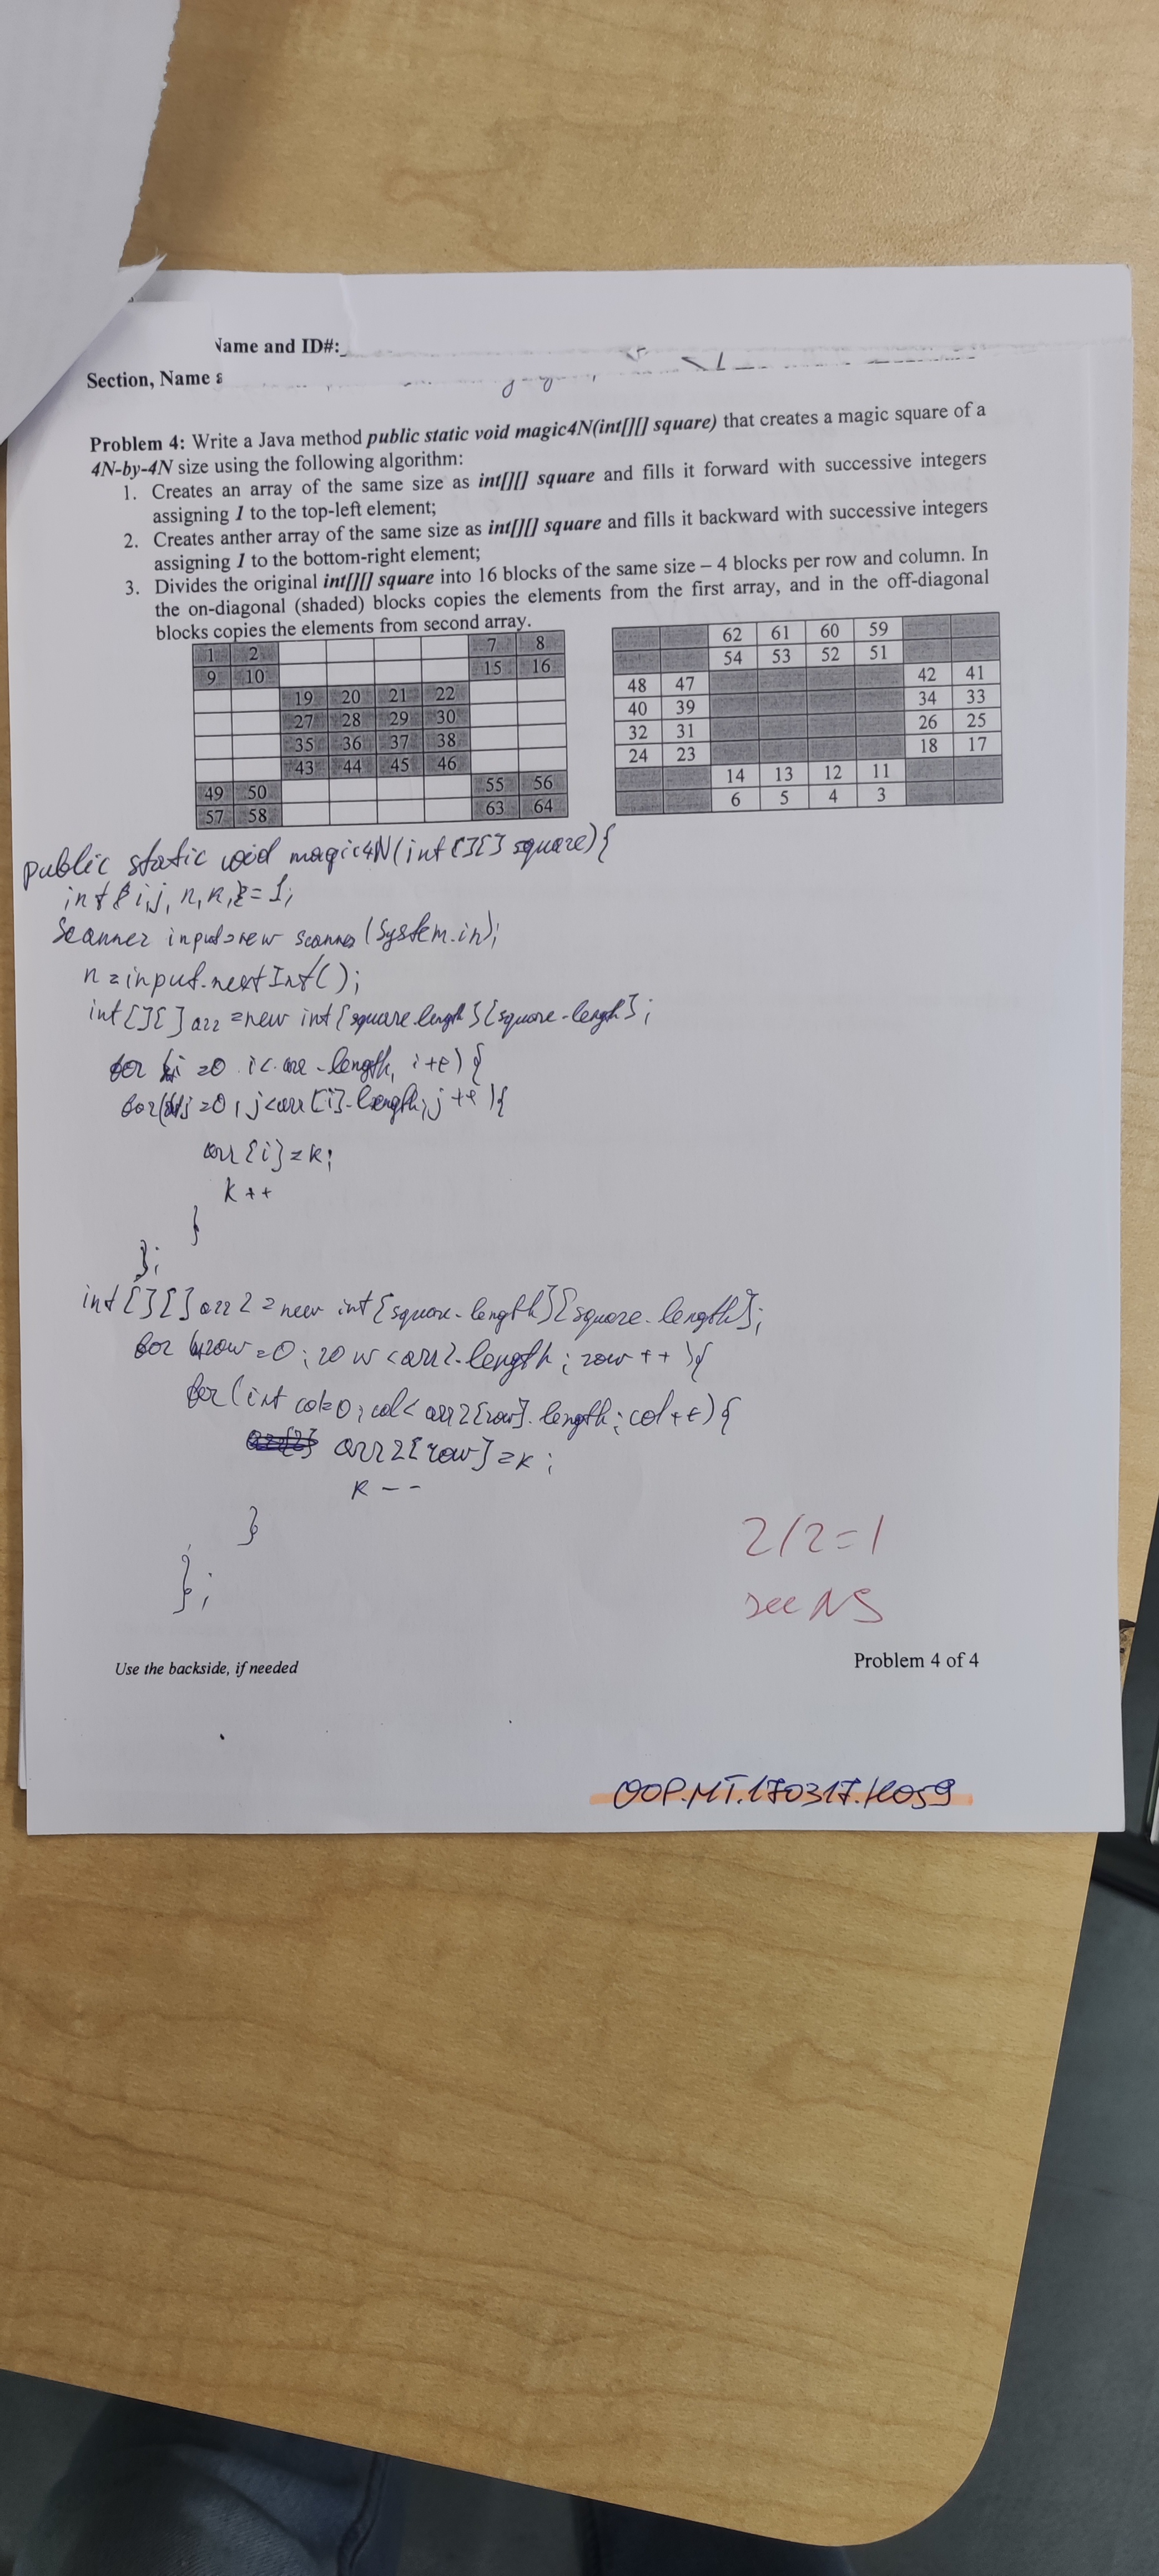 Name and ID#:_
Section, Name a
Problem 4: Write a Java method public static void magic4N(int[][] square) that creates a magic square of a
4N-by-4N size using the following algorithm:
1. Creates an array of the same size as int[][] square and fills it forward with successive integers
assigning 1 to the top-left element;
2. Creates anther array of the same size as int[][] square and fills it backward with successive integers
assigning 1 to the bottom-right element;
3. Divides the original int[][] square into 16 blocks of the same size – 4 blocks per row and column. In
the on-diagonal (shaded) blocks copies the elements from the first array, and in the off-diagonal
blocks copies the elements from second array.
1 2 7 8
9 10 15 16
19 20 21 22
27 28 29 30
35 36 37 38
43 44 45 46
49 50 55 56
57 58 63 64
62 61 60 59
54 53 52 51
48 47 42 41
40 39 34 33
32 31 26 25
24 23 18 17
14 13 12 11
6 5 4 3
public static void magic4N(int[][] square){
int i,j, n, k = 1;
Scanner input=new scanner(System.in);
n = input.nextInt();
int[][] arr = new int[square.lengh][square.lengh];
for i =0 i< arr.length, i++) {
for( j =0; j<arr[i].length; j++){
arr[i] = k;
k++
}
};
int[][] arr2 = new int[square.length][square.length];
for row = 0; row < arr2.length; row ++){
for(int col=0; col< arr2[row].length; col++){
arr2[row] = k;
k--
}
};
2/2=1
see NS
Use the backside, if needed
Problem 4 of 4
OOP.MT.170317.K059